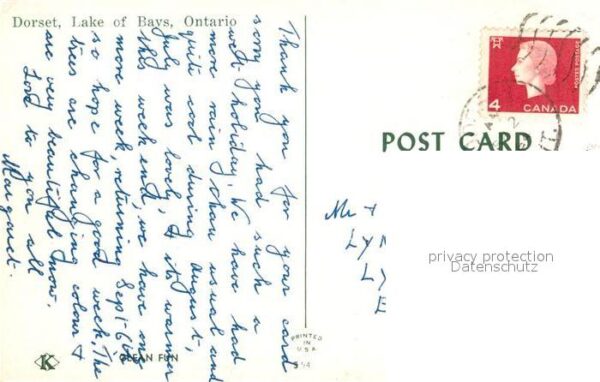 Dorset, Lake of Bays, Ontario
Thank you for your card
sorry you had such a
wet holiday. We have had
more rain than usual and
quite cool during August,
July was lovely, & it warmer
this weekend, we have one
more week, returning Sept-6th
so hope for a good week. The
trees are changing colour &
are very beautiful now.
Love to you all
Margaret.
4
CANADA
POSTES POSTAGE
POST CARD
Mr +
LYN
LY
E
privacy protection
Datenschutz
PRINTED
IN
U.S.A.
K
CLEAN FUN